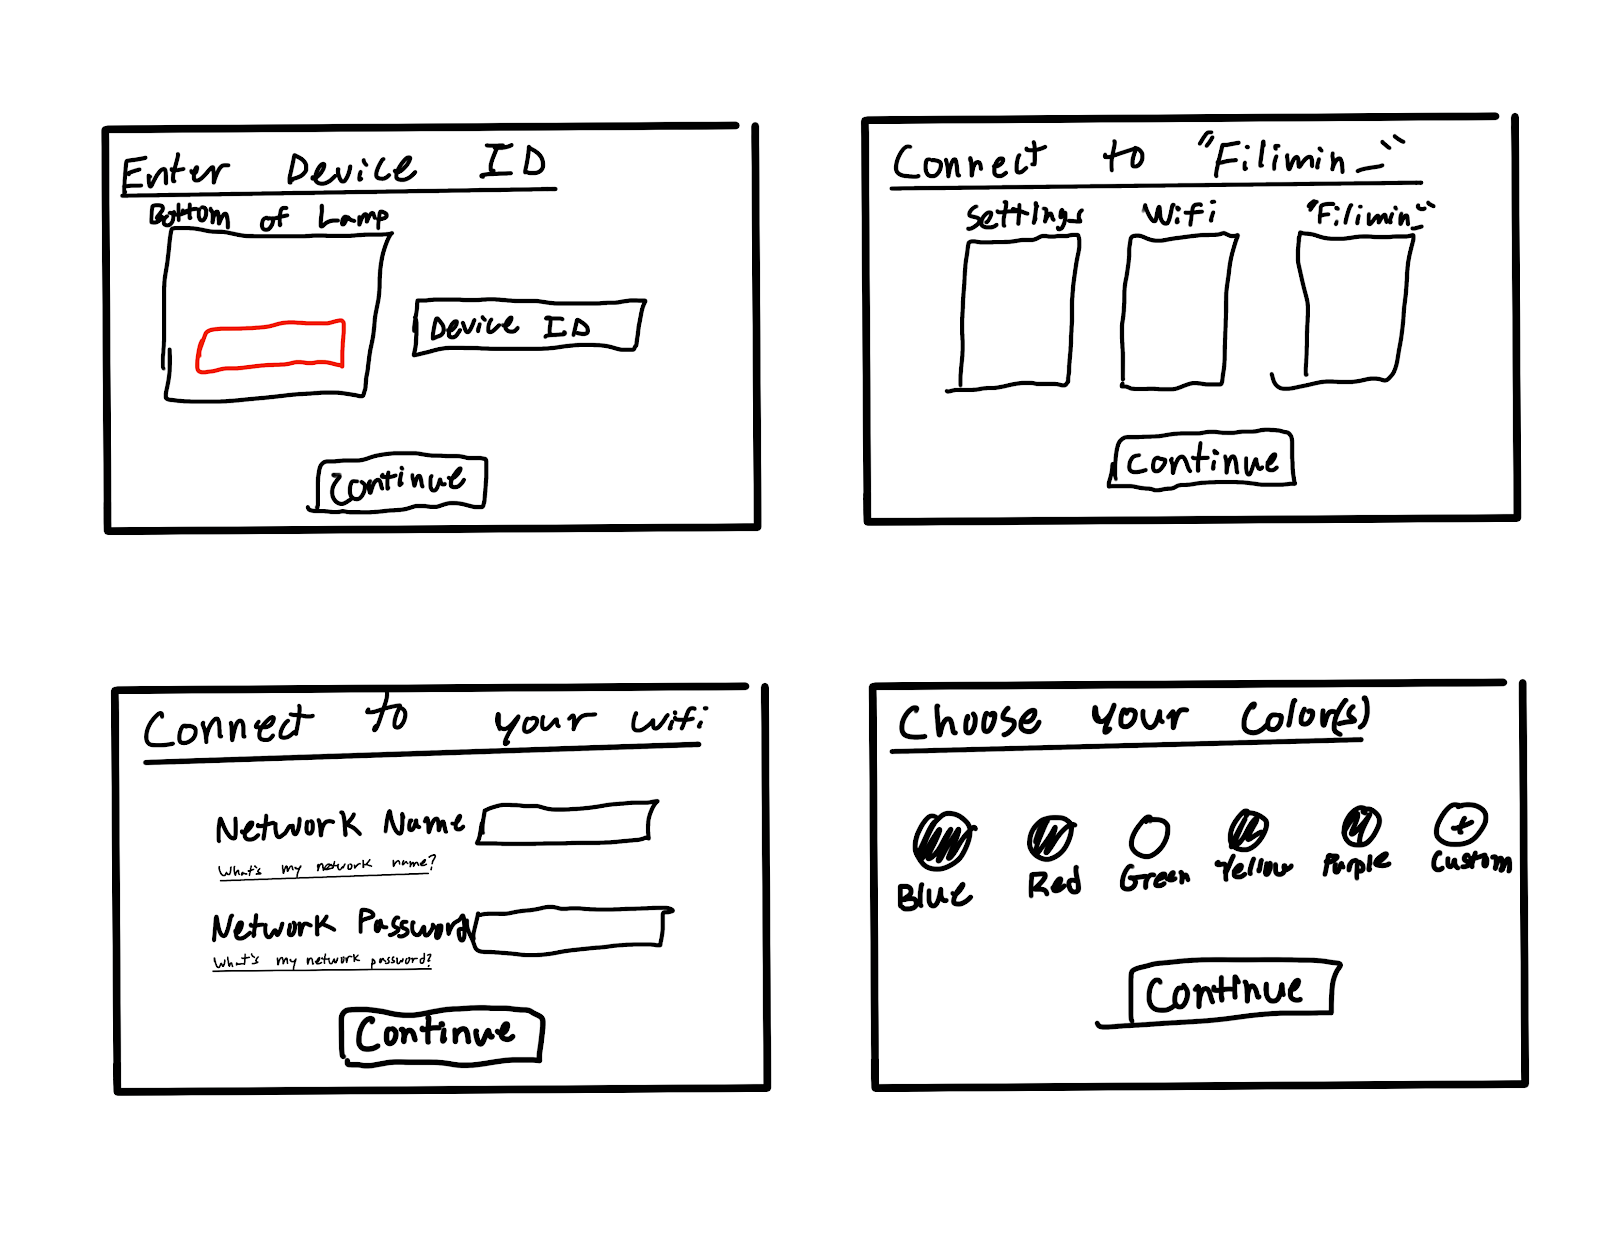 Enter Device ID
Bottom of Lamp
Device ID
Continue
Connect to "Filimin_"
Settings Wifi "Filimin_"
Continue
Connect to your wifi
Network Name
What's my network name?
Network Password
What's my network password?
Continue
Choose your Color(s)
Blue Red Green Yellow Purple Custom
Continue